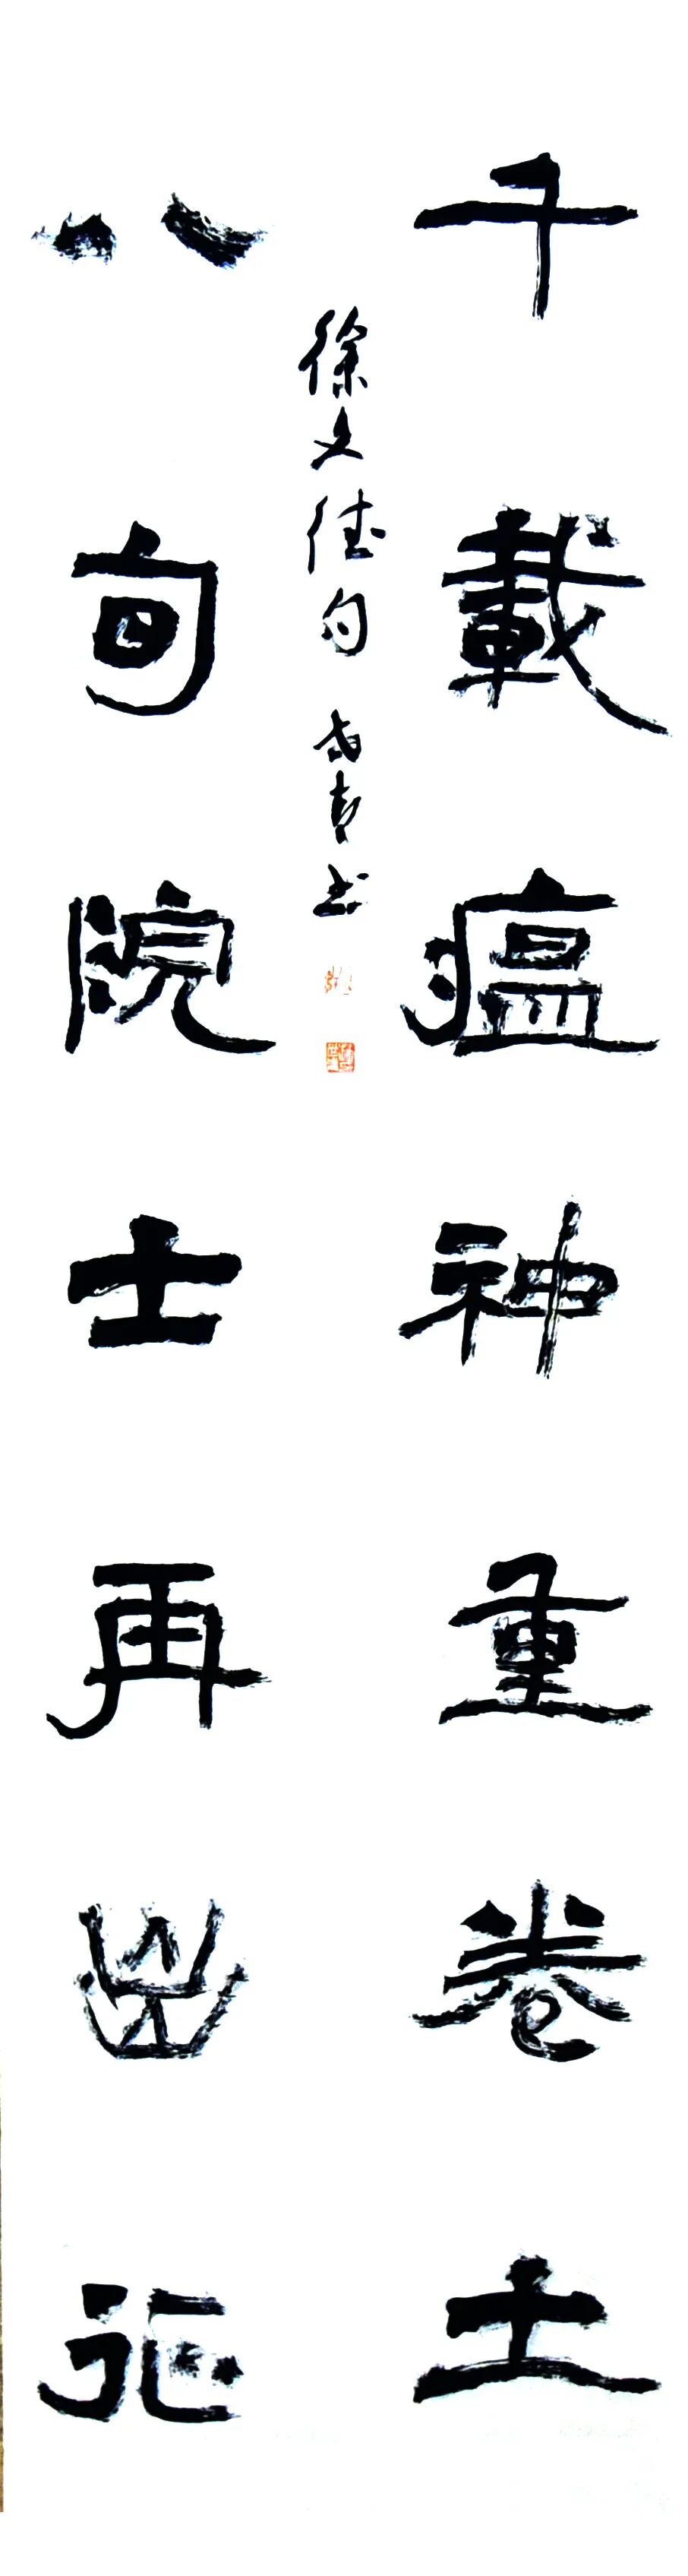 千載瘟神重卷土
八旬院士再出征
徐文德句 書